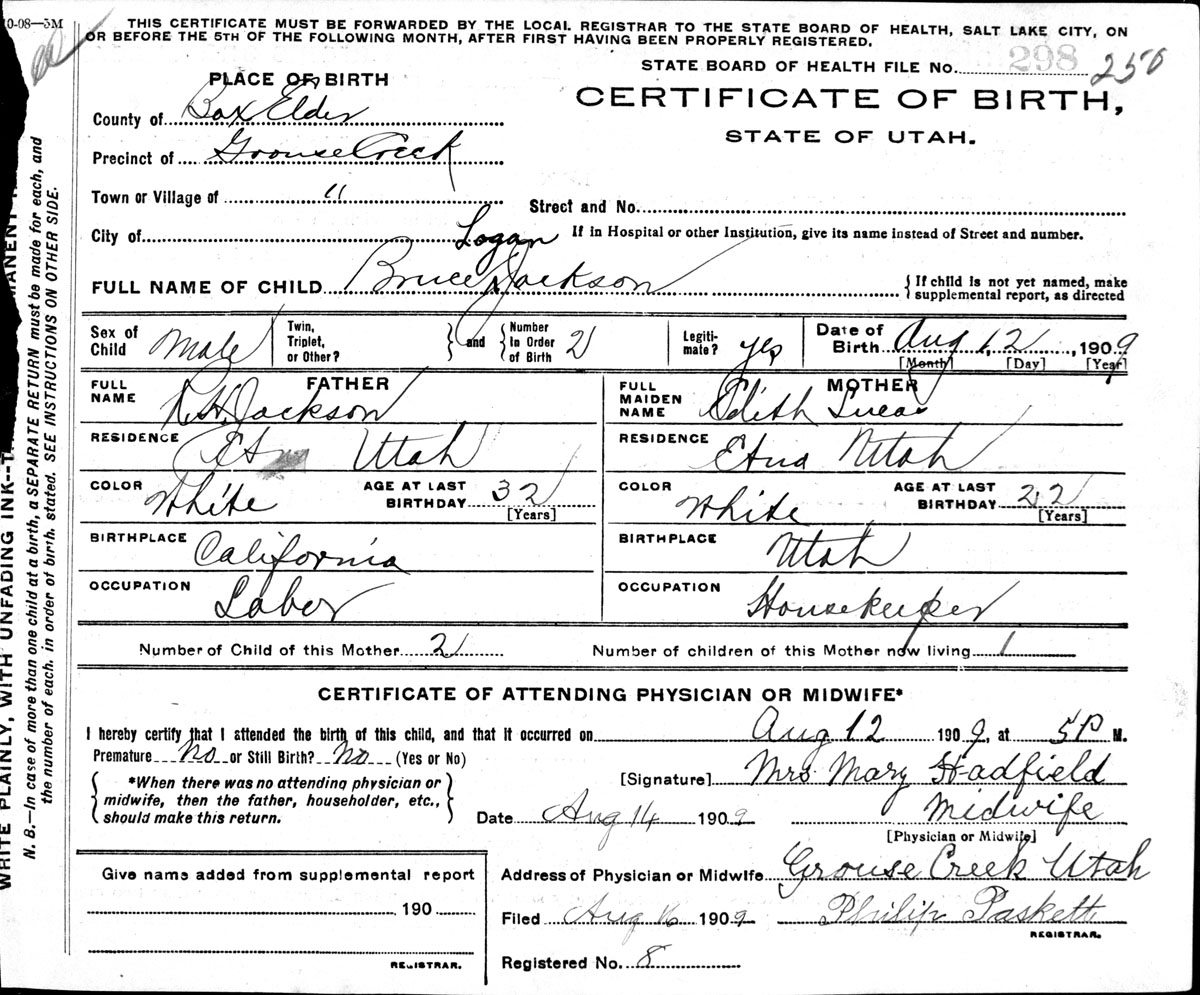 10-08—3M
THIS CERTIFICATE MUST BE FORWARDED BY THE LOCAL REGISTRAR TO THE STATE BOARD OF HEALTH, SALT LAKE CITY, ON
OR BEFORE THE 5TH OF THE FOLLOWING MONTH, AFTER FIRST HAVING BEEN PROPERLY REGISTERED.
STATE BOARD OF HEALTH FILE No. 298 250
PLACE OF BIRTH
CERTIFICATE OF BIRTH,
STATE OF UTAH.
County of Box Elder
Precinct of Grouse Creek
Town or Village of "
Street and No.
City of Logan
If in Hospital or other Institution, give its name instead of Street and number.
FULL NAME OF CHILD Bruce Jackson
{ If child is not yet named, make supplemental report, as directed
Sex of Child Male
Twin, Triplet, or Other? } and { Number In Order of Birth 2
Legitimate? yes
Date of Birth Aug 12, 1909
[Month] [Day] [Year]
FATHER
FULL NAME R.H. Jackson
RESIDENCE Etna Utah
COLOR White AGE AT LAST BIRTHDAY 32
[Years]
BIRTHPLACE California
OCCUPATION Labor
MOTHER
FULL MAIDEN NAME Edith Lucas
RESIDENCE Etna Utah
COLOR White AGE AT LAST BIRTHDAY 22
[Years]
BIRTHPLACE Utah
OCCUPATION Housekeeper
Number of Child of this Mother 2 Number of children of this Mother now living 1
CERTIFICATE OF ATTENDING PHYSICIAN OR MIDWIFE*
I hereby certify that I attended the birth of this child, and that it occurred on Aug 12 1909, at 5 P M.
Premature No or Still Birth? No (Yes or No)
{ *When there was no attending physician or midwife, then the father, householder, etc., should make this return. }
[Signature] Mrs Mary Hadfield
Date Aug 14 1909 Midwife
[Physician or Midwife]
Address of Physician or Midwife Grouse Creek Utah
Filed Aug 16 1909 Philip Paskett
REGISTRAR.
Registered No. 8
Give name added from supplemental report
190
REGISTRAR.
WRITE PLAINLY, WITH UNFADING INK--
N. B.—In case of more than one child at a birth, a SEPARATE RETURN must be made for each, and
the number of each, in order of birth, stated. SEE INSTRUCTIONS ON OTHER SIDE.